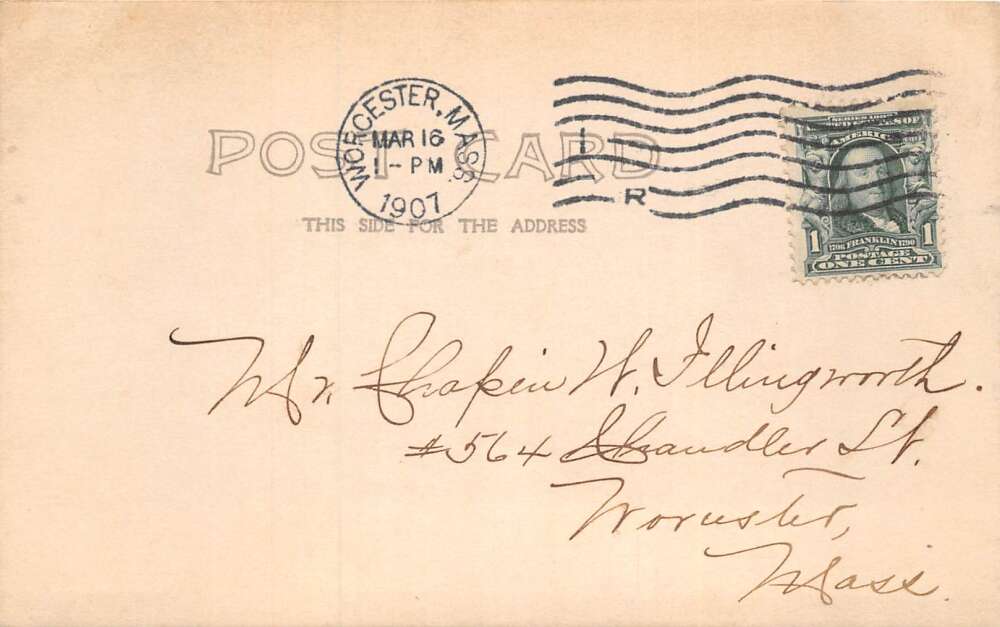 POST CARD
THIS SIDE FOR THE ADDRESS
WORCESTER, MASS.
MAR 16
1 - PM
1907
1
R
SERIES 1902
AMERICA
1706 FRANKLIN 1790
1 POSTAGE 1
ONE CENT
Mr. Chapin W. Illingworth.
#564 Chandler St.
Worcester,
Mass.